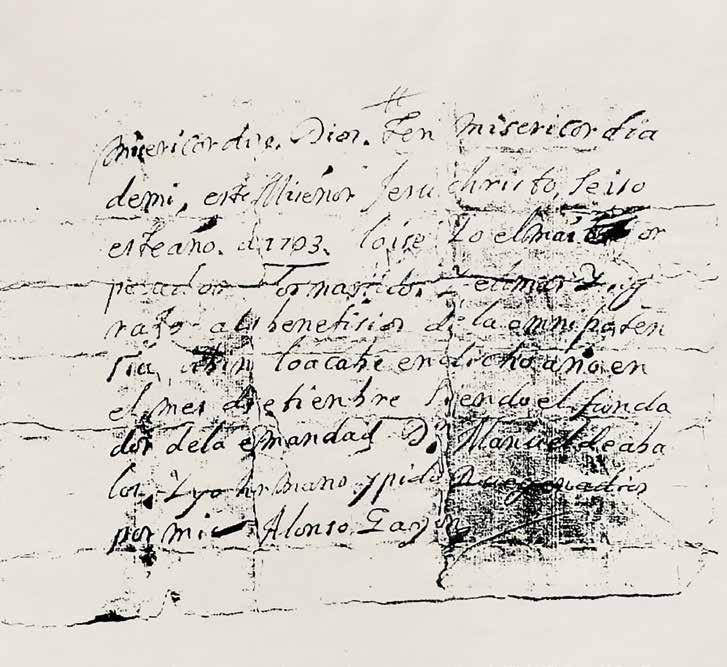 misericordia. Dios. Ten misericordia
demi, este Miseñor Jesuchristo, seiso
esteaño. d 1703. loise Yo elmai or
pecador
rato al benefisios de la omnipoten
sia, loacabe endichoaño en
el mes disetienbre siendo el funda
dor dela emandad D. Manuel deaba
los, Yyo hrmano ypido Rueguenadios
por mi Alonso Gayon